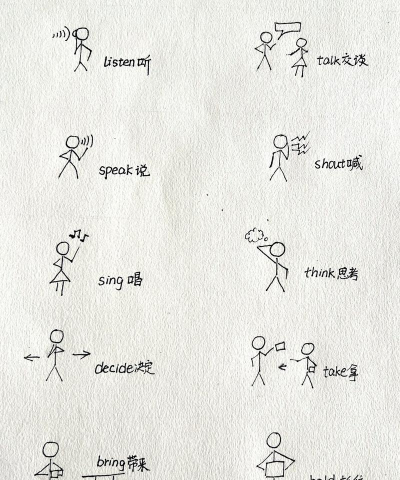 listen 听
talk 交谈
speak 说
shout 喊
sing 唱
think 思考
decide 决定
take 拿
bring 带来